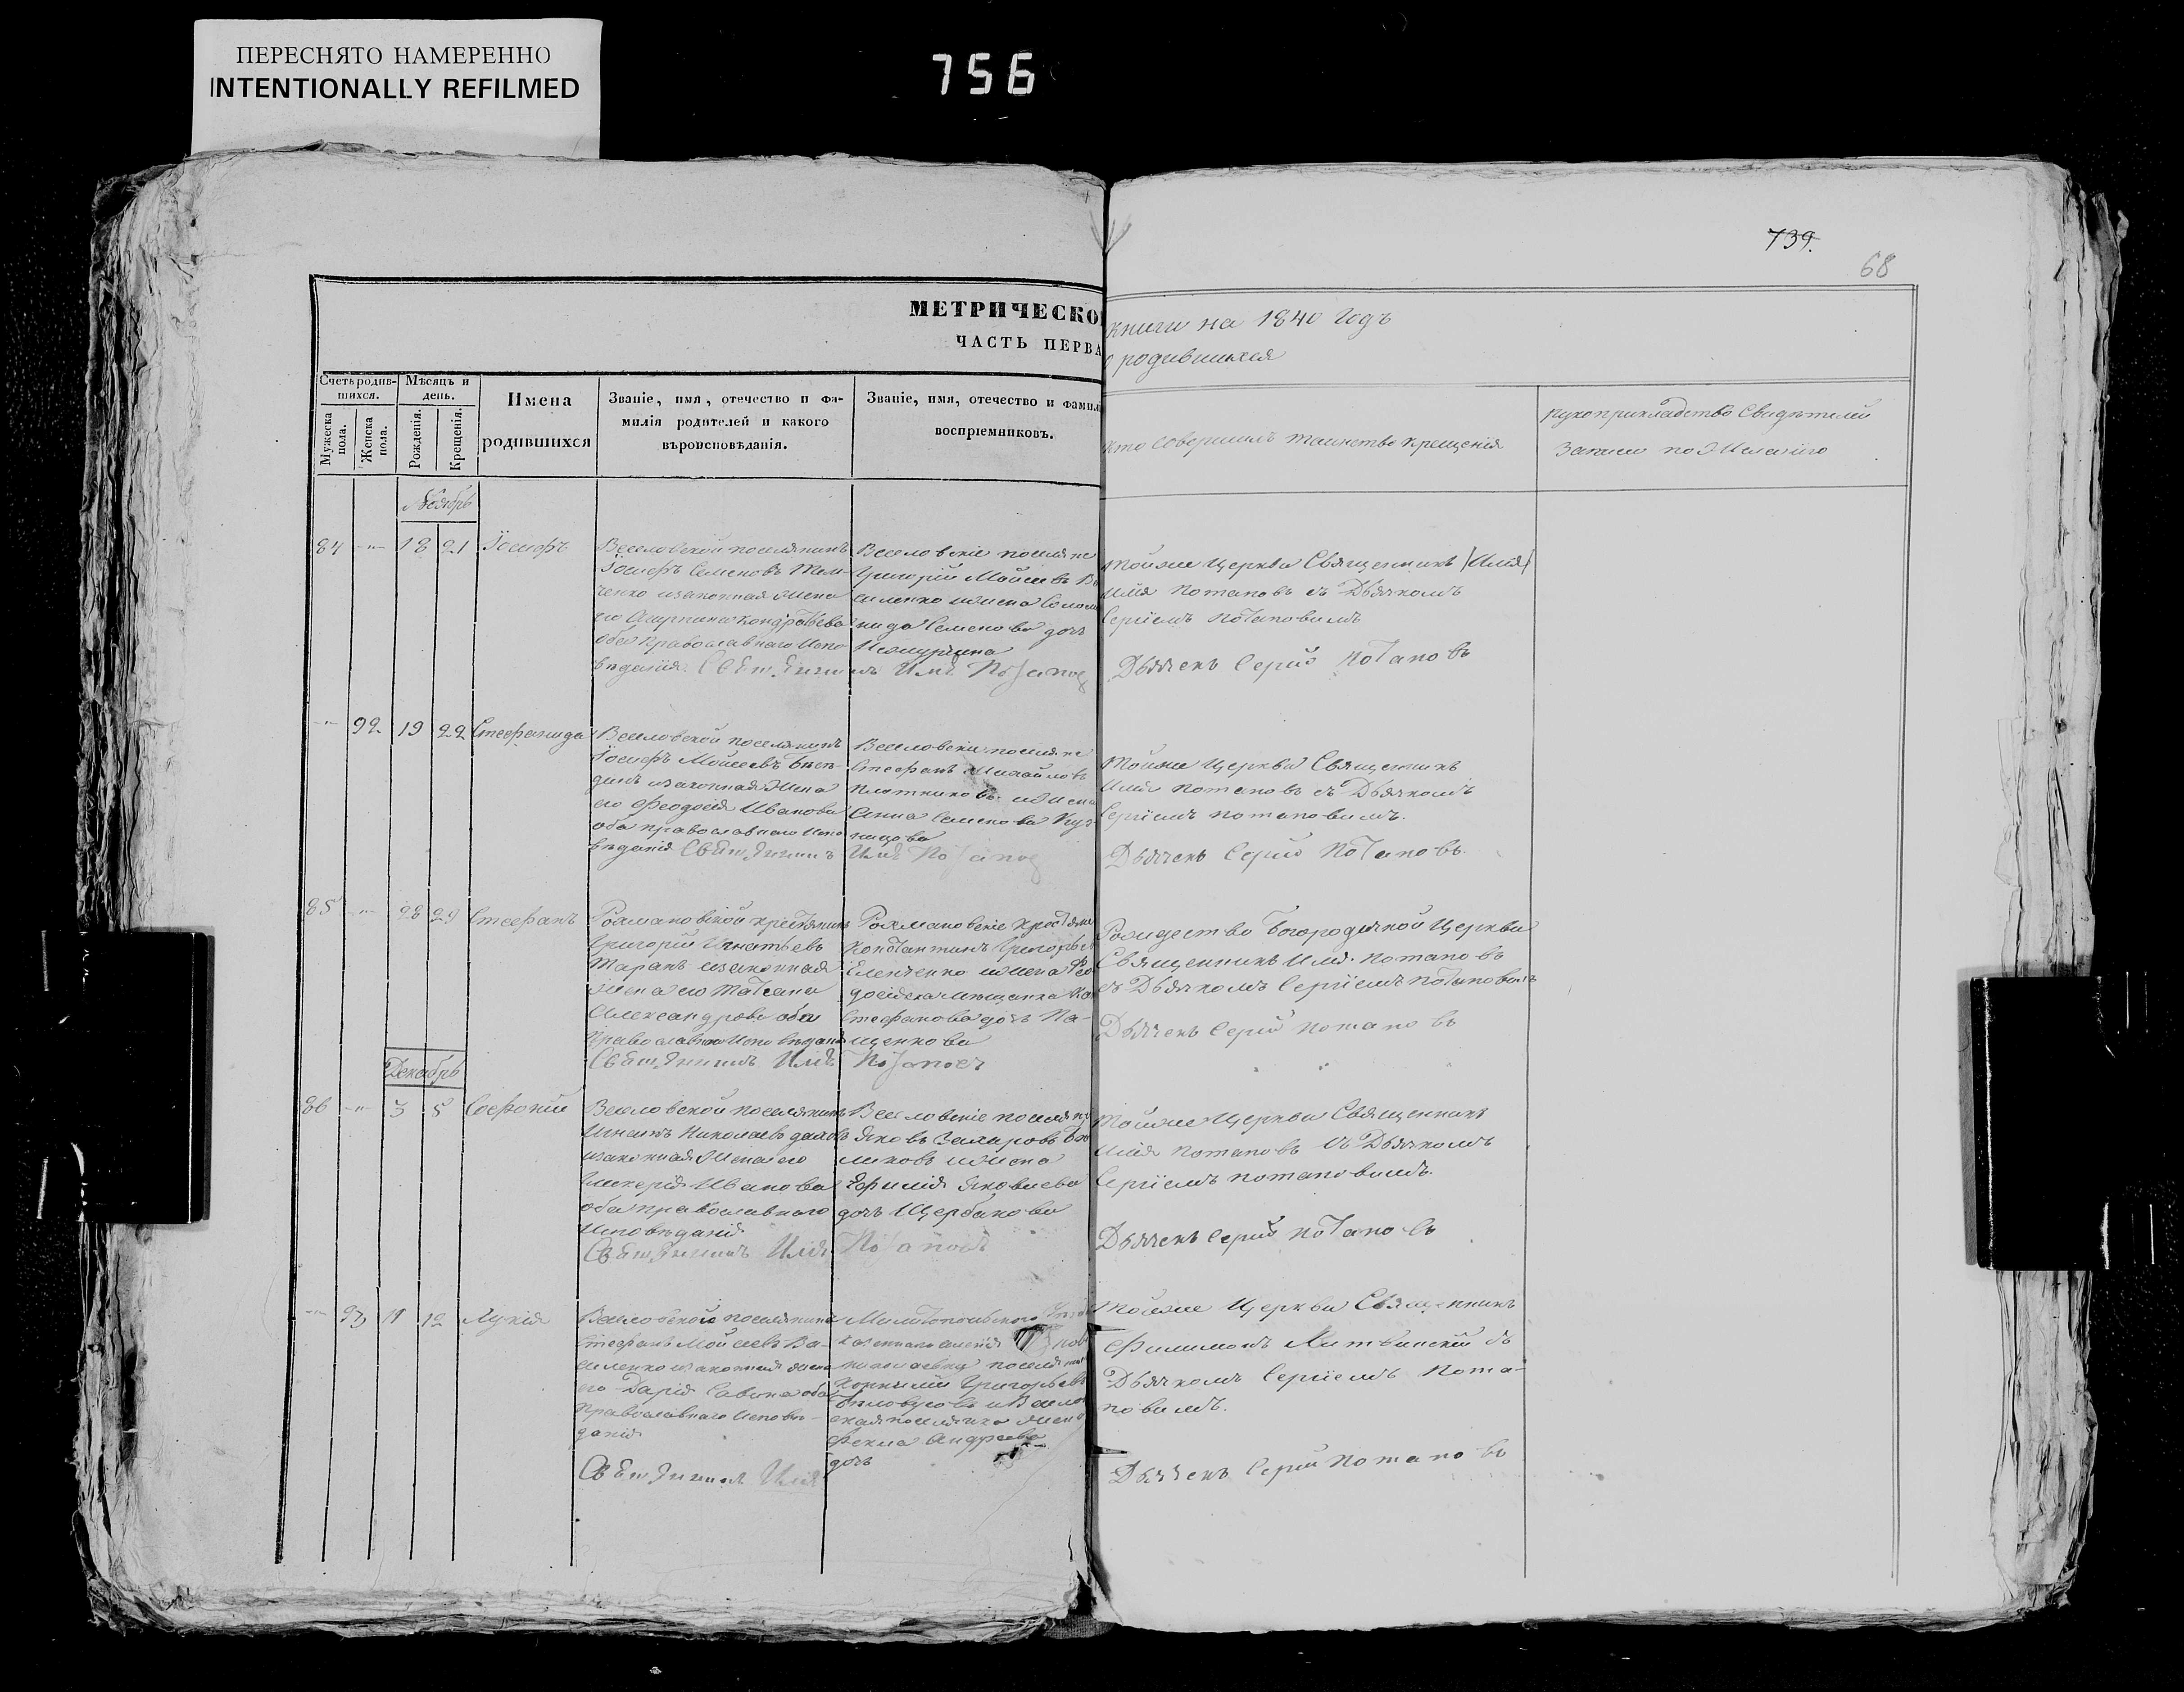 ПЕРЕСНЯТО НАМЕРЕННО
INTENTIONALLY REFILMED
756
739.
68
МЕТРИЧЕСКО
ЧАСТЬ ПЕРВА
книги на 1840 годъ
о родившихся
Счетъ родив-
шихся.
Мужеска
пола.
Женска
пола.
Мѣсяцъ и
день.
Рожденія.
Крещенія.
Имена
родившихся
Званіе, имя, отечество и фа-
милія родителей и какого
вѣроисповѣданія.
Званіе, имя, отечество и фамилі
воспріемниковъ.
кто совершилъ таинство крещенія
рукоприкладство свидѣтелей
записи по
Ноябрь
84 -"- 18 21 Іосифъ
Веселовской поселянинъ
Іосифъ Семеновъ
ченко изаконная жена
его Кондратьева
оба Православнаго Испо
вѣданія
Веселовскіе поселяне
Григорій Моисеевъ Ва
силенко ижена Соломо
нида Семенова дочь
Илія Потапов
тойже Церкви Священникъ /Илія/
Илія Потаповъ съ Дьячкомъ
Сергіемъ Потаповымъ
Дьячекъ Сергій Потаповъ
-"- 92 19 22 Стефанида
Веселовской поселянинъ
Іосифъ Моисеевъ
динъ изаконная жена
его Феодосія Иванова
оба православнаго Испо
вѣданія Священникъ
Веселовскіе поселяне
Стефанъ Михайловъ
Плотниковъ ижена
Анна Семенова Куз-
нецова
Илія Потапов
тойже Церкви Священникъ
Илія Потаповъ съ Дьячкомъ
Сергіемъ Потаповымъ.
Дьячекъ Сергій Потаповъ.
85 -"- 28 29 Стефанъ
крестьянинъ
Григорій Игнатьевъ
Таранъ изаконная
жена его Татіана
Александрова оба
Православнаго Исповѣдані
Священникъ Илія
Константинъ Григорьев
ижена Фео
Стефанова дочь Па-
щенкова
Потаповъ
Рождество Богородичной Церкви
Священникъ Илія Потаповъ
съ Дьячкомъ Сергіемъ Потаповымъ
Дьячекъ Сергій Потаповъ
Декабрь
86 -"- 3 5 Софоній
Веселовской поселянинъ
Николаевъ
изаконная Жена его
Гликерія Иванова
оба православнаго
Исповѣданія
Священникъ Илія
Веселовскіе поселяне
Яковъ Захаровъ
ликовъ ижена
Ефимія Яковлева
дочь Щербакова
Потаповъ
Тойже Церкви Священникъ
Илія Потаповъ съ Дьячкомъ
Сергіемъ Потаповымъ.
Дьячекъ Сергій Потаповъ
-"- 93 11 12 Лукія
Веселовскаго поселянина
Стефанъ Моисеевъ Ва-
силенко изаконная жена
его Дарія Савина оба
Православнаго Исповѣ-
данія
Священникъ Илія
Мелитопольскаго
поселя
Григорьевъ
Бѣлоусовъ иВесело
ская поселянка жена
Фекла Андреева
дочь
Тойже Церкви Священникъ
Филимонъ съ
Дьячкомъ Сергіемъ Пота-
повымъ.
Дьячекъ Сергій Потаповъ